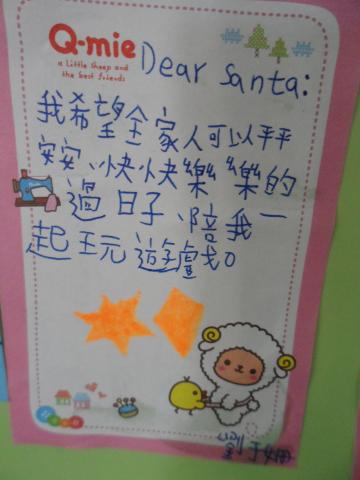 Q-mie
a little sheep and
the best friends
Dear Santa:
我希望全家人可以平平
安安、快快樂樂的
過日子、陪我一
起玩遊戲。
劉于姍